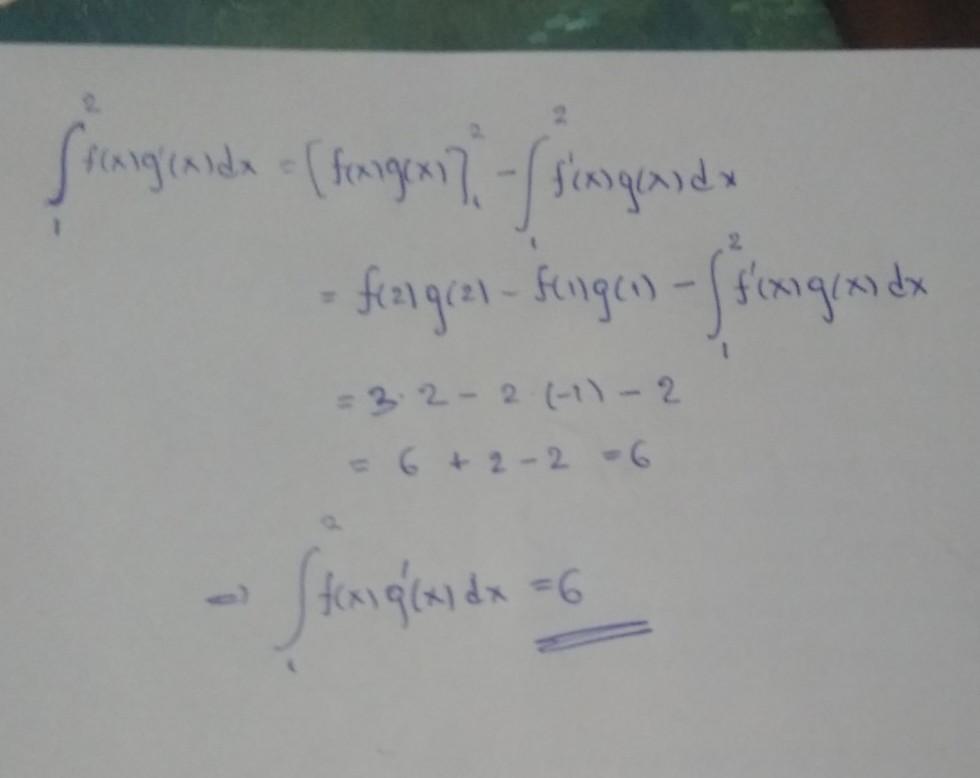 ∫₁² f(x)g'(x)dx = [f(x)g(x)]₁² - ∫₁² f'(x)g(x)dx
= f(2)g(2) - f(1)g(1) - ∫₁² f'(x)g(x)dx
= 3·2 - 2·(-1) - 2
= 6 + 2 - 2 = 6
⇒ ∫₁² f(x)g'(x)dx = 6